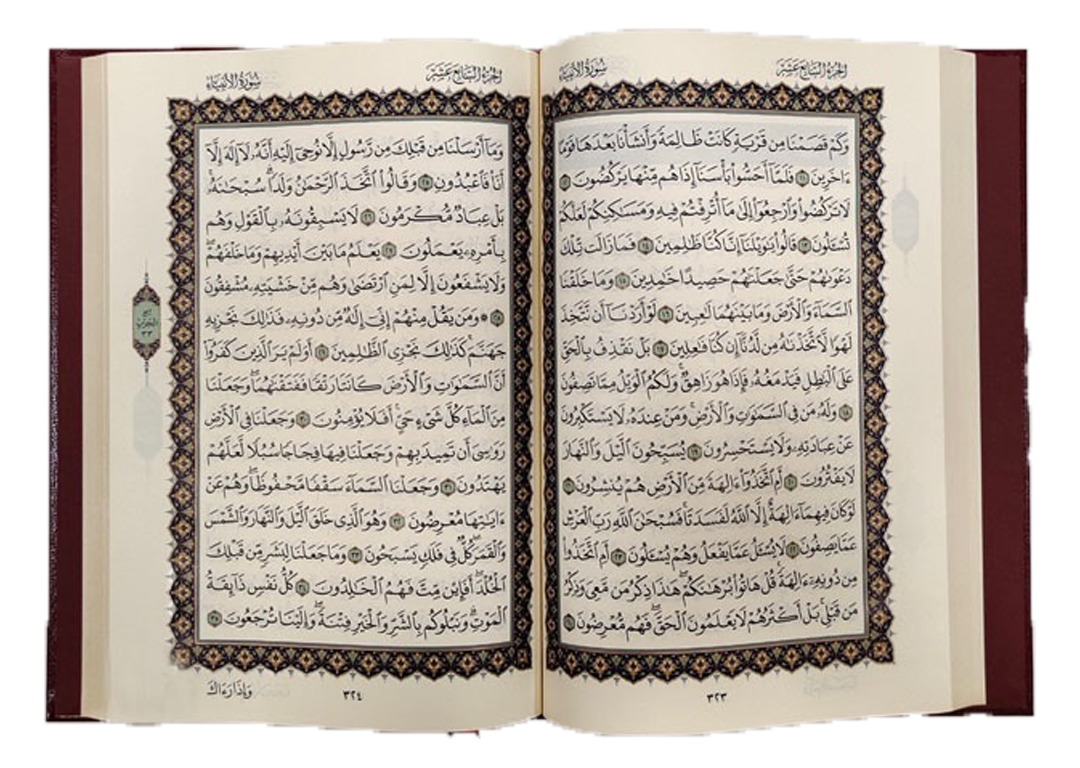 الجزء السابع عشر
سورة الأنبياء
وَكَمْ قَصَمْنَا مِن قَرْيَةٍ كَانَتْ ظَالِمَةً وَأَنشَأْنَا بَعْدَهَا قَوْمًا
ءَاخَرِينَ ١١ فَلَمَّآ أَحَسُّوا۟ بَأْسَنَآ إِذَا هُم مِّنْهَا يَرْكُضُونَ ١٢
لَا تَرْكُضُوا۟ وَٱرْجِعُوٓا۟ إِلَىٰ مَآ أُتْرِفْتُمْ فِيهِ وَمَسَـٰكِنِكُمْ لَعَلَّكُمْ
تُسْـَٔلُونَ ١٣ قَالُوا۟ يَـٰوَيْلَنَآ إِنَّا كُنَّا ظَـٰلِمِينَ ١٤ فَمَا زَالَت تِّلْكَ
دَعْوَىٰهُمْ حَتَّىٰ جَعَلْنَـٰهُمْ حَصِيدًا خَـٰمِدِينَ ١٥ وَمَا خَلَقْنَا
ٱلسَّمَآءَ وَٱلْأَرْضَ وَمَا بَيْنَهُمَا لَـٰعِبِينَ ١٦ لَوْ أَرَدْنَآ أَن نَّتَّخِذَ
لَهْوًا لَّٱتَّخَذْنَـٰهُ مِن لَّدُنَّآ إِن كُنَّا فَـٰعِلِينَ ١٧ بَلْ نَقْذِفُ بِٱلْحَقِّ
عَلَى ٱلْبَـٰطِلِ فَيَدْمَغُهُۥ فَإِذَا هُوَ زَاهِقٌ ۚ وَلَكُمُ ٱلْوَيْلُ مِمَّا تَصِفُونَ
١٨ وَلَهُۥ مَن فِى ٱلسَّمَـٰوَٰتِ وَٱلْأَرْضِ ۚ وَمَنْ عِندَهُۥ لَا يَسْتَكْبِرُونَ
عَنْ عِبَادَتِهِۦ وَلَا يَسْتَحْسِرُونَ ١٩ يُسَبِّحُونَ ٱلَّيْلَ وَٱلنَّهَارَ
لَا يَفْتُرُونَ ٢٠ أَمِ ٱتَّخَذُوٓا۟ ءَالِهَةً مِّنَ ٱلْأَرْضِ هُمْ يُنشِرُونَ ٢١
لَوْ كَانَ فِيهِمَآ ءَالِهَةٌ إِلَّا ٱللَّهُ لَفَسَدَتَا ۚ فَسُبْحَـٰنَ ٱللَّهِ رَبِّ ٱلْعَرْشِ
عَمَّا يَصِفُونَ ٢٢ لَا يُسْـَٔلُ عَمَّا يَفْعَلُ وَهُمْ يُسْـَٔلُونَ ٢٣ أَمِ ٱتَّخَذُوا۟
مِن دُونِهِۦٓ ءَالِهَةً ۖ قُلْ هَاتُوا۟ بُرْهَـٰنَكُمْ ۖ هَـٰذَا ذِكْرُ مَن مَّعِىَ وَذِكْرُ
مَن قَبْلِى ۗ بَلْ أَكْثَرُهُمْ لَا يَعْلَمُونَ ٱلْحَقَّ ۖ فَهُم مُّعْرِضُونَ ٢٤
٣٢٣
الجزء السابع عشر
سورة الأنبياء
وَمَآ أَرْسَلْنَا مِن قَبْلِكَ مِن رَّسُولٍ إِلَّا نُوحِىٓ إِلَيْهِ أَنَّهُۥ لَآ إِلَـٰهَ إِلَّآ
أَنَا۠ فَٱعْبُدُونِ ٢٥ وَقَالُوا۟ ٱتَّخَذَ ٱلرَّحْمَـٰنُ وَلَدًا ۗ سُبْحَـٰنَهُۥ ۚ
بَلْ عِبَادٌ مُّكْرَمُونَ ٢٦ لَا يَسْبِقُونَهُۥ بِٱلْقَوْلِ وَهُم
بِأَمْرِهِۦ يَعْمَلُونَ ٢٧ يَعْلَمُ مَا بَيْنَ أَيْدِيهِمْ وَمَا خَلْفَهُمْ
وَلَا يَشْفَعُونَ إِلَّا لِمَنِ ٱرْتَضَىٰ وَهُم مِّنْ خَشْيَتِهِۦ مُشْفِقُونَ
٢٨ ۞ وَمَن يَقُلْ مِنْهُمْ إِنِّىٓ إِلَـٰهٌ مِّن دُونِهِۦ فَذَٰلِكَ نَجْزِيهِ
جَهَنَّمَ ۚ كَذَٰلِكَ نَجْزِى ٱلظَّـٰلِمِينَ ٢٩ أَوَلَمْ يَرَ ٱلَّذِينَ كَفَرُوٓا۟
أَنَّ ٱلسَّمَـٰوَٰتِ وَٱلْأَرْضَ كَانَتَا رَتْقًا فَفَتَقْنَـٰهُمَا ۖ وَجَعَلْنَا
مِنَ ٱلْمَآءِ كُلَّ شَىْءٍ حَىٍّ ۖ أَفَلَا يُؤْمِنُونَ ٣٠ وَجَعَلْنَا فِى ٱلْأَرْضِ
رَوَٰسِىَ أَن تَمِيدَ بِهِمْ وَجَعَلْنَا فِيهَا فِجَاجًا سُبُلًا لَّعَلَّهُمْ
يَهْتَدُونَ ٣١ وَجَعَلْنَا ٱلسَّمَآءَ سَقْفًا مَّحْفُوظًا ۖ وَهُمْ عَنْ
ءَايَـٰتِهَا مُعْرِضُونَ ٣٢ وَهُوَ ٱلَّذِى خَلَقَ ٱلَّيْلَ وَٱلنَّهَارَ وَٱلشَّمْسَ
وَٱلْقَمَرَ ۖ كُلٌّ فِى فَلَكٍ يَسْبَحُونَ ٣٣ وَمَا جَعَلْنَا لِبَشَرٍ مِّن قَبْلِكَ
ٱلْخُلْدَ ۖ أَفَإِي۟ن مِّتَّ فَهُمُ ٱلْخَـٰلِدُونَ ٣٤ كُلُّ نَفْسٍ ذَآئِقَةُ
ٱلْمَوْتِ ۗ وَنَبْلُوكُم بِٱلشَّرِّ وَٱلْخَيْرِ فِتْنَةً ۖ وَإِلَيْنَا تُرْجَعُونَ ٣٥
٣٢٤
وَإِذَا رَءَاكَ